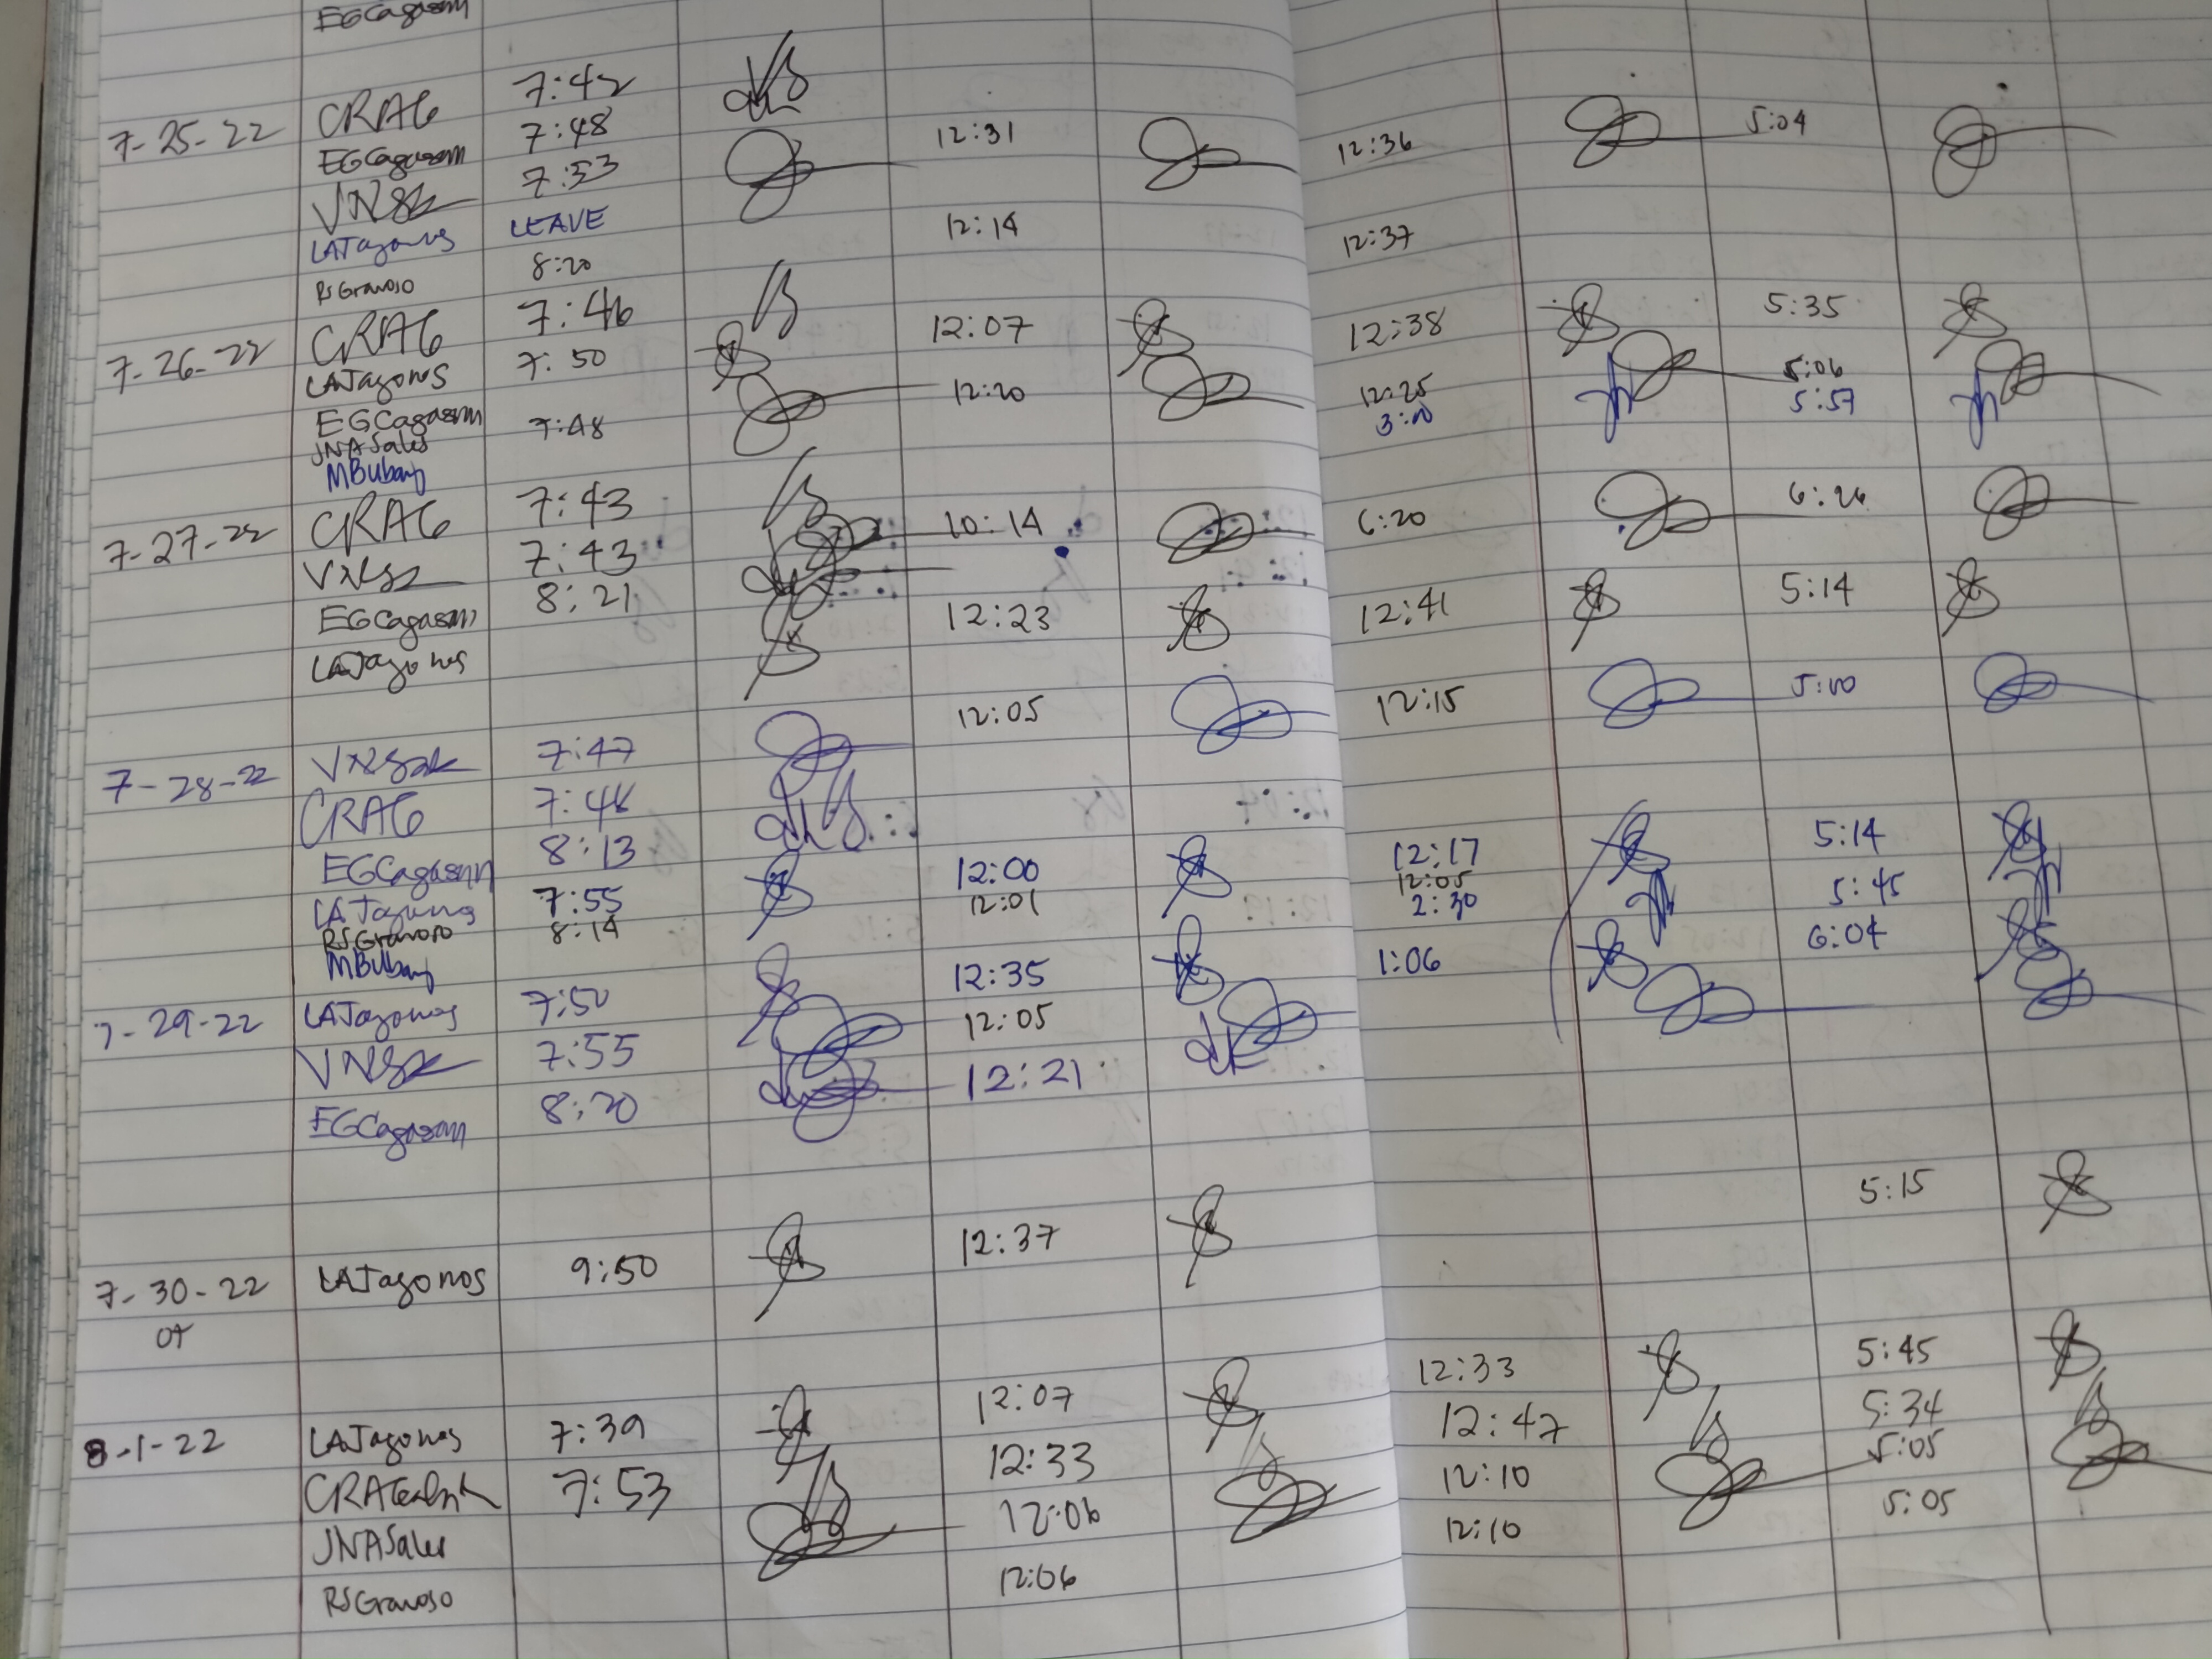 EGCagasan
CRAG 7:42
7-25-22 EGCagasan 7:48 12:31 12:36 5:04
7:53
LATagonos LEAVE 12:14 12:37
RSGranoso 8:20
7-26-22 CRAG 7:46 12:07 12:38 5:35
LATagonos 7:50 12:20 12:25 5:06
EGCagasan 3:00 5:57
JNASales 7:48
MBUbany
7-27-22 CRAG 7:43 10:14 6:20 6:26
7:43
EGCagasan 8:21 12:23 12:41 5:14
LATagonos
12:05 12:15 5:00
7-28-22 7:47
CRAG 7:48
EGCagasan 8:13 12:00 12:17 5:14
LATagonos 7:55 12:01 12:05 5:45
RSGranoso 8:14 2:30
MBUbany
7-29-22 LATagonos 7:50 12:35 1:06 6:04
7:55 12:05
EGCagasan 8:20 12:21
5:15
7-30-22 LATagonos 9:50 12:37
OT
8-1-22 LATagonos 7:39 12:07 12:33 5:45
7:53 12:33 12:47 5:34
JNASales 12:06 12:10 5:05
RSGranoso 12:06 12:10 5:05